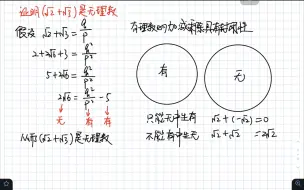 证明(√2+√3)是无理数
假设 √2+√3 = q/p
2+2√6+3 = q²/p²
5+2√6 = q²/p²
2√6 = q²/p² - 5
↓ ↓ ↓
无 有 有
从而(√2+√3)是无理数
有理数的加减乘除具有封闭性
有 无
只能无中生有 √2+(-√2)=0
不能有中生无 √2+√2 =2√2